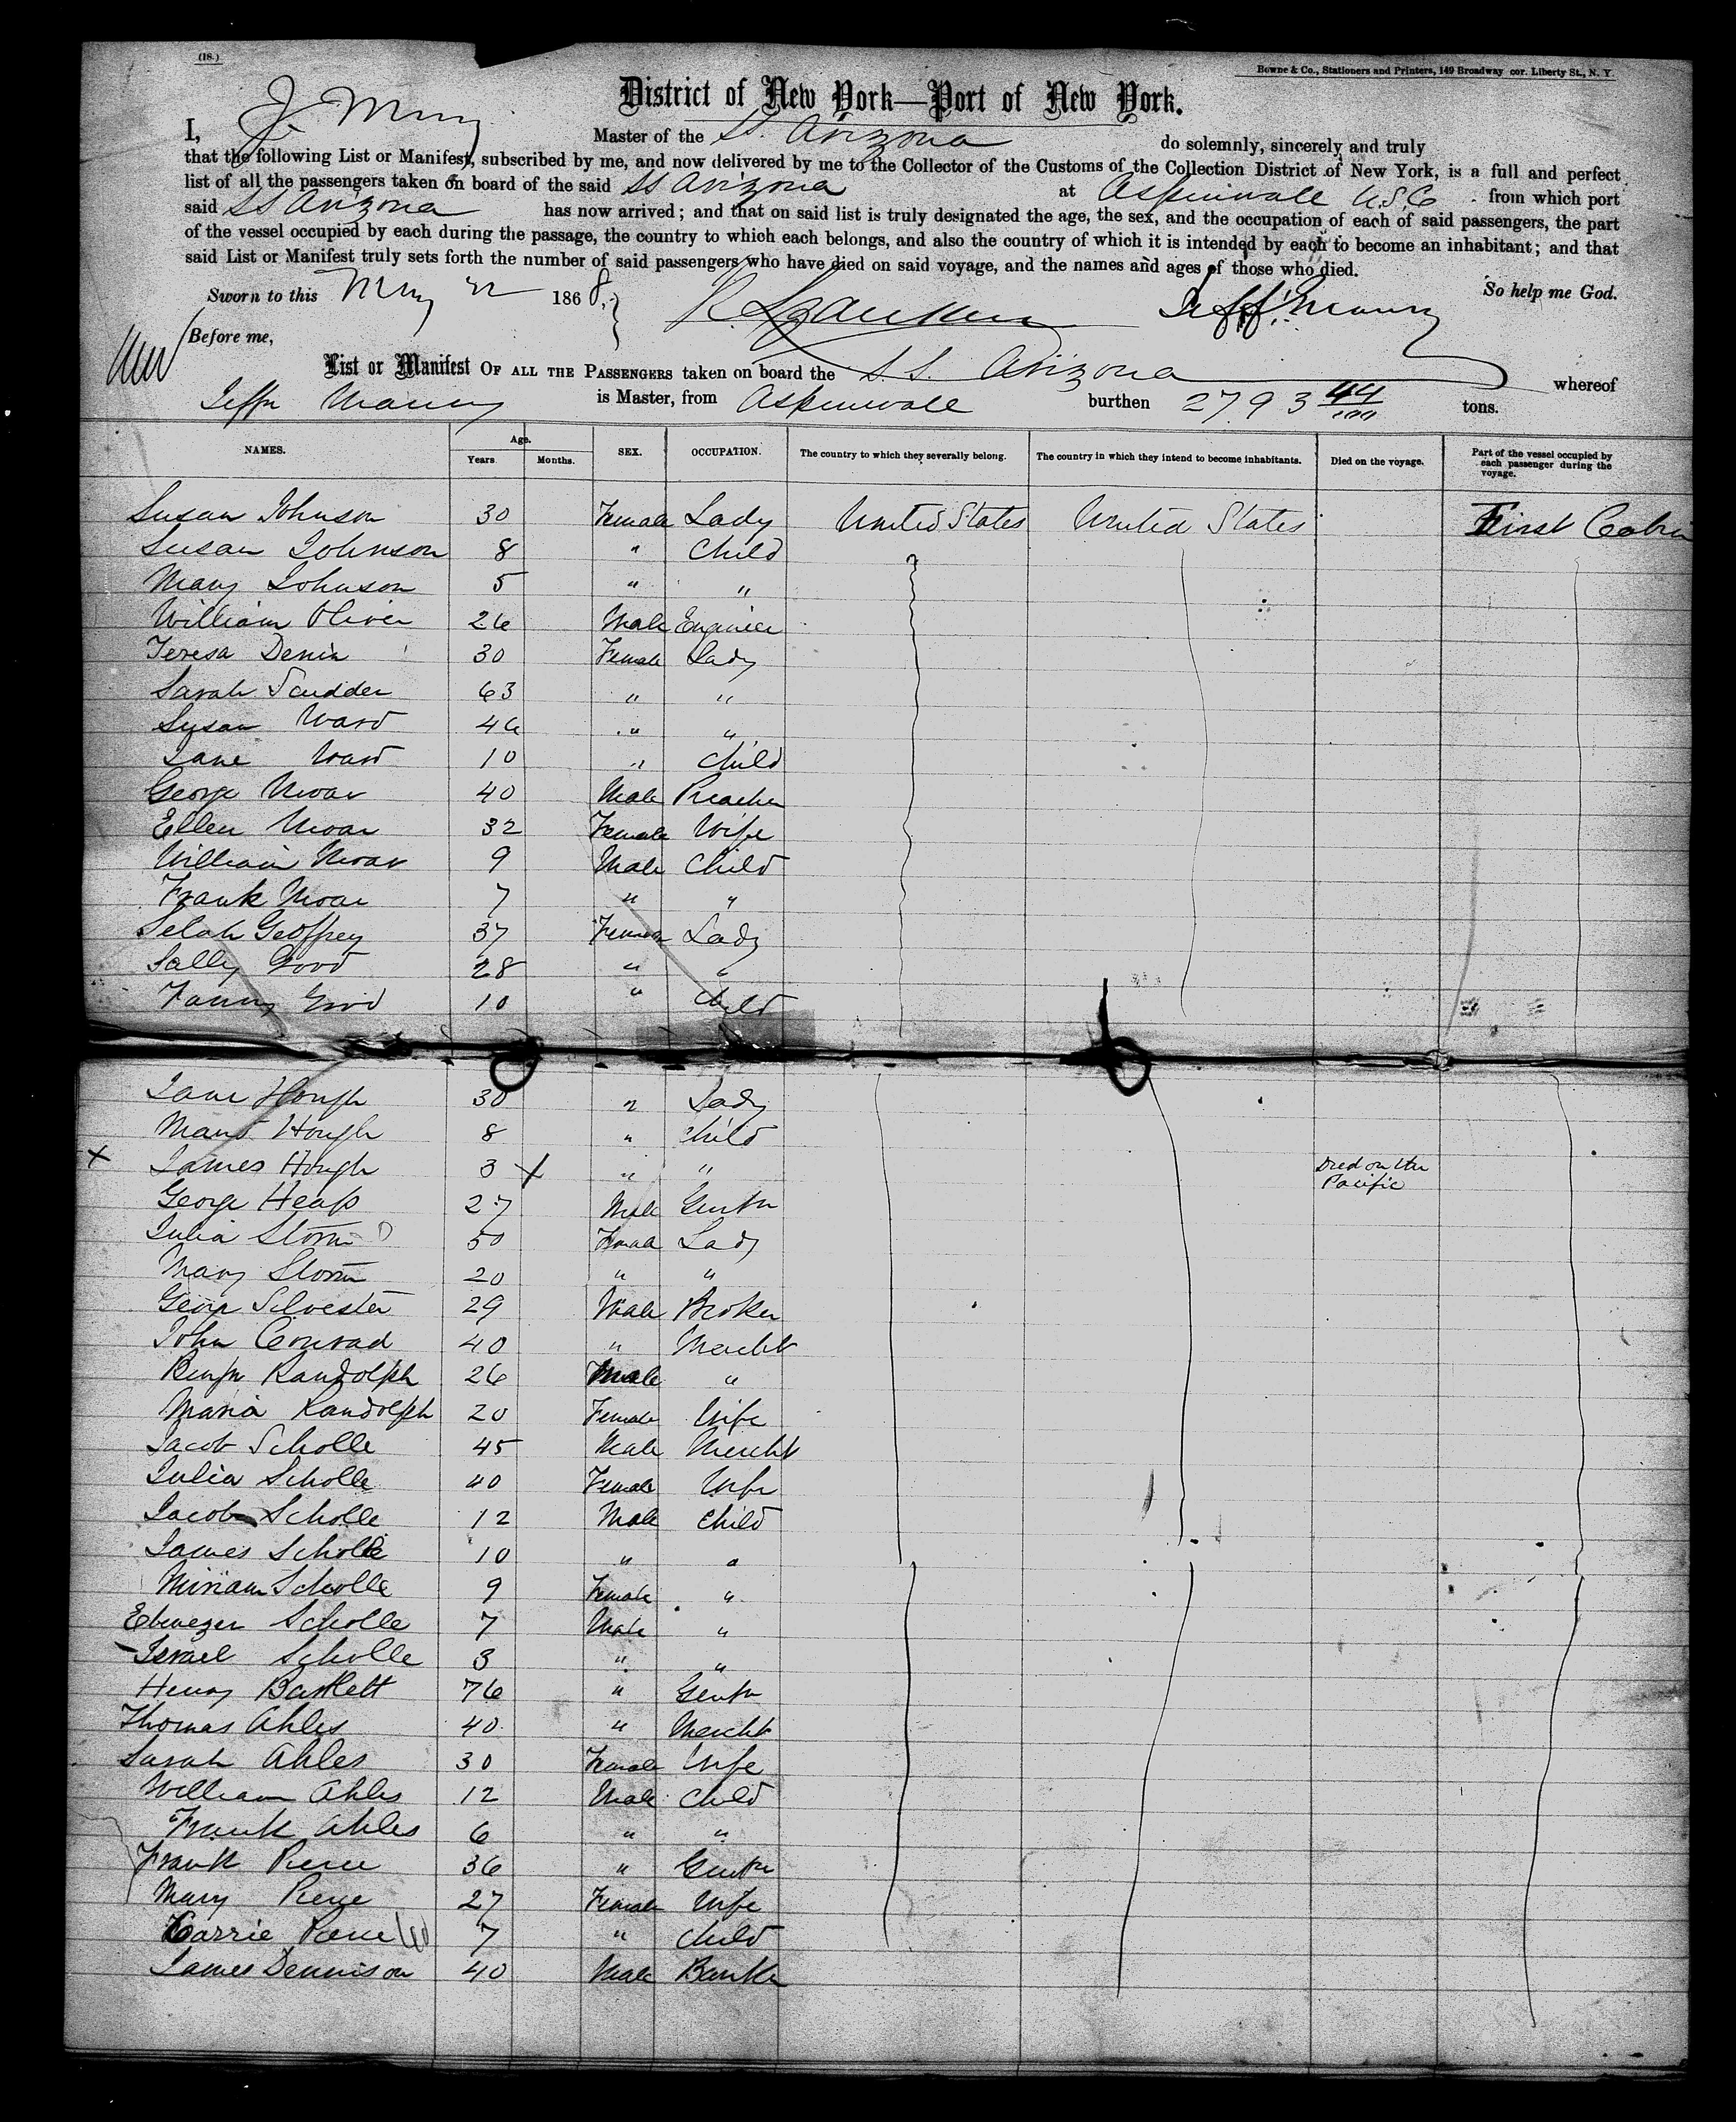 (18.)
Bowne & Co., Stationers and Printers, 149 Broadway cor. Liberty St., N. Y.
District of New York—Port of New York.
I, J. Master of the SS. Arizona do solemnly, sincerely and truly
that the following List or Manifest, subscribed by me, and now delivered by me to the Collector of the Customs of the Collection District of New York, is a full and perfect
list of all the passengers taken on board of the said SS Arizona at Aspinwall U.S.C. from which port
said SS Arizona has now arrived; and that on said list is truly designated the age, the sex, and the occupation of each of said passengers, the part
of the vessel occupied by each during the passage, the country to which each belongs, and also the country of which it is intended by each to become an inhabitant; and that
said List or Manifest truly sets forth the number of said passengers who have died on said voyage, and the names and ages of those who died.
So help me God.
Sworn to this May 22 1868, Jeff. Maury
Before me,
List or Manifest OF ALL THE PASSENGERS taken on board the S.S. Arizona whereof
Jeffn Maury is Master, from Aspinwall burthen 2793 44/100 tons.
NAMES. Age. Years. Months. SEX. OCCUPATION. The country to which they severally belong. The country in which they intend to become inhabitants. Died on the voyage. Part of the vessel occupied by each passenger during the voyage.
Susan Johnson 30 Female Lady United States United States First Cabin
Susan Johnson 8 " Child
Mary Johnson 5 " "
William Oliver 26 Male Engineer
Teresa Denin 30 Female Lady
Sarah Scudder 63 " "
Susan Ward 46 " "
Jane Ward 10 " Child
George Moar 40 Male Preacher
Ellen Moar 32 Female Wife
William Moar 9 Male Child
Frank Moar 7 " "
Selah Geoffrey 37 Female Lady
Sally Good 28 " "
Fanny Good 10 " Child
Jane Hough 30 " Lady
Maud Hough 8 " Child
x James Hough 3 x " " Died on the Pacific
George Heap 27 Male Gentn
Julia Storm 50 Female Lady
Mary Storm 20 " "
George Silvester 29 Male Broker
John Conrad 40 " Mercht
Benjn Randolph 26 Male "
Maria Randolph 20 Female Wife
Jacob Scholle 45 Male Mercht
Julia Scholle 40 Female Wife
Jacob Scholle 12 Male Child
James Scholle 10 " "
Miriam Scholle 9 Female "
Ebenezer Scholle 7 Male "
Israel Scholle 3 " "
Henry Bartlett 76 " Gentn
Thomas Ahles 40 " Mercht
Sarah Ahles 30 Female Wife
William Ahles 12 Male Child
Frank Ahles 6 " "
Frank Pierce 36 " Gentn
Mary Pierce 27 Female Wife
Carrie Pierce 7 " Child
James Dennison 40 Male Banker